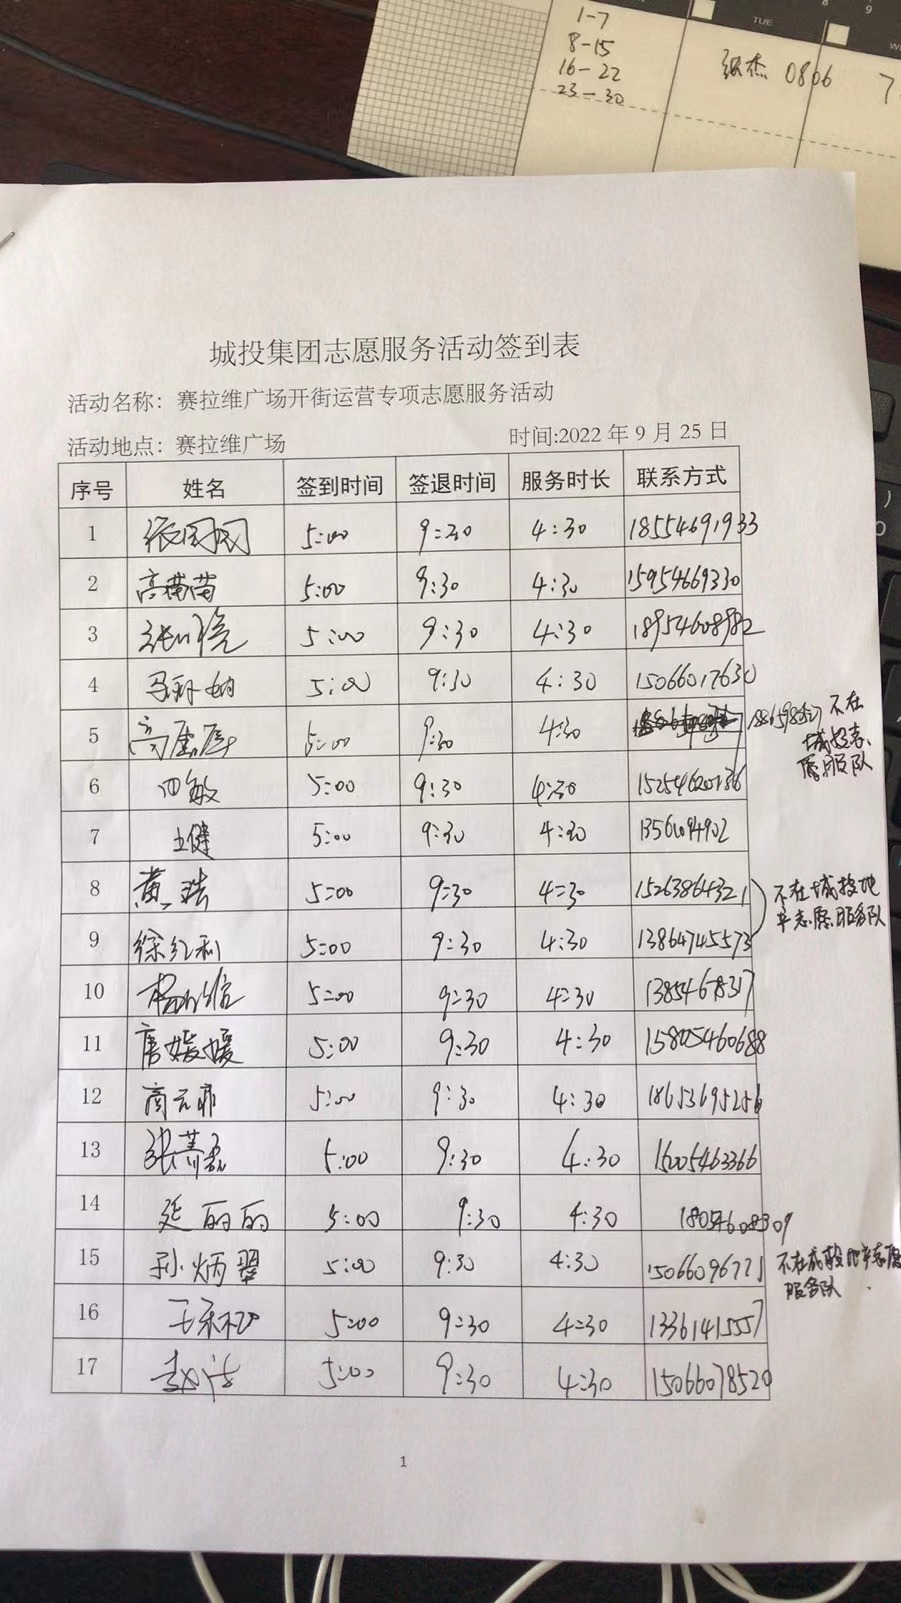 1-7
8-15
16-22
23-30
TUE
张杰 0806 7
9
城投集团志愿服务活动签到表
活动名称：赛拉维广场开街运营专项志愿服务活动
活动地点：赛拉维广场 时间:2022年9月25日
序号 姓名 签到时间 签退时间 服务时长 联系方式
1 5:00 9:30 4:30 18554691933
2 高苗苗 5:00 9:30 4:30 15954669330
3 5:00 9:30 4:30 18954608982
4 5:00 9:30 4:30 15066017630
5 5:00 9:30 4:30 不在
城投志
愿服队
6 5:00 9:30 4:30 15254620136
7 王健 5:00 9:30 4:30 1356094902
8 黄洁 5:00 9:30 4:30 15263864321 不在城投地
产志愿服务队
9 徐红利 5:00 9:30 4:30 13864745573
10 5:00 9:30 4:30 13854678317
11 唐媛媛 5:00 9:30 4:30 15805460688
12 5:00 9:30 4:30 18653695256
13 5:00 9:30 4:30 15005463366
14 延丽丽 5:00 9:30 4:30 18054608309
15 孙炳翠 5:00 9:30 4:30 15066096721 不在城投地产志愿
服务队
16 5:00 9:30 4:30 13361415557
17 赵洁 5:00 9:30 4:30 15066078520
1